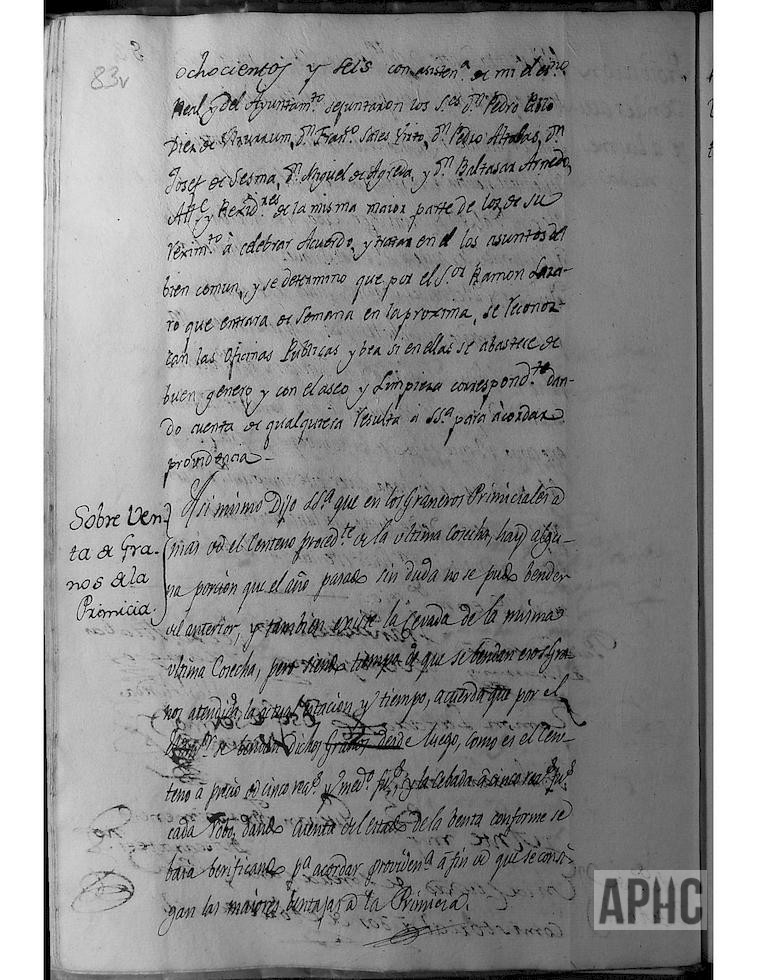 83v
ochocientos y seis con asisten.ª de mi el es.no
Real y del Ayuntam.to se juntaron los S.res D.n Pedro
Diez de D.n Fran.co Saies D.n Pedro D.n
Josef de Sesma, D.n Miguel de Agreda y D.n Baltasar Arnedo,
Alc.e y Rexid.res de la misma maior parte de los de su
Rexim.to à celebrar Acuerdo, y tratar en el los asuntos del
bien comun, y se determino que por el S.or Ramon Laza-
ro que entrara de Semana en la proxima, se reconoz-
can las Oficinas Publicas y bea si en ellas se abastece de
buen genero y con el aseo y Limpieza correspond.te dan-
do cuenta de qualquiera resulta a SSª para acordar
providencia -
Sobre Ven-
ta de Gra-
nos de la
Primicia.
Asi mismo Dijo SSª que en los Graneros Primiciales a
mas de el Centeno proced.te de la ultima Cosecha, hay algu-
na porcion que el año pasado sin duda no se pudo bender
del anterior, y tambien existe la Cevada de la misma
ultima Cosecha, pero siendo tiempo de que se bendan esos Gra-
nos atendida la actual estacion y tiempo, acuerda que por el
se bendan Dichos Granos desde luego, como es el Cen-
teno a precio de cinco rea.s y med.o y la Cebada a cinco rea.s
cada robo, dando cuenta del estado de la benta conforme se
baia berificando p.ª acordar providen.ª a fin de que se consi-
gan las maiores bentajas a la Primicia.
APHC